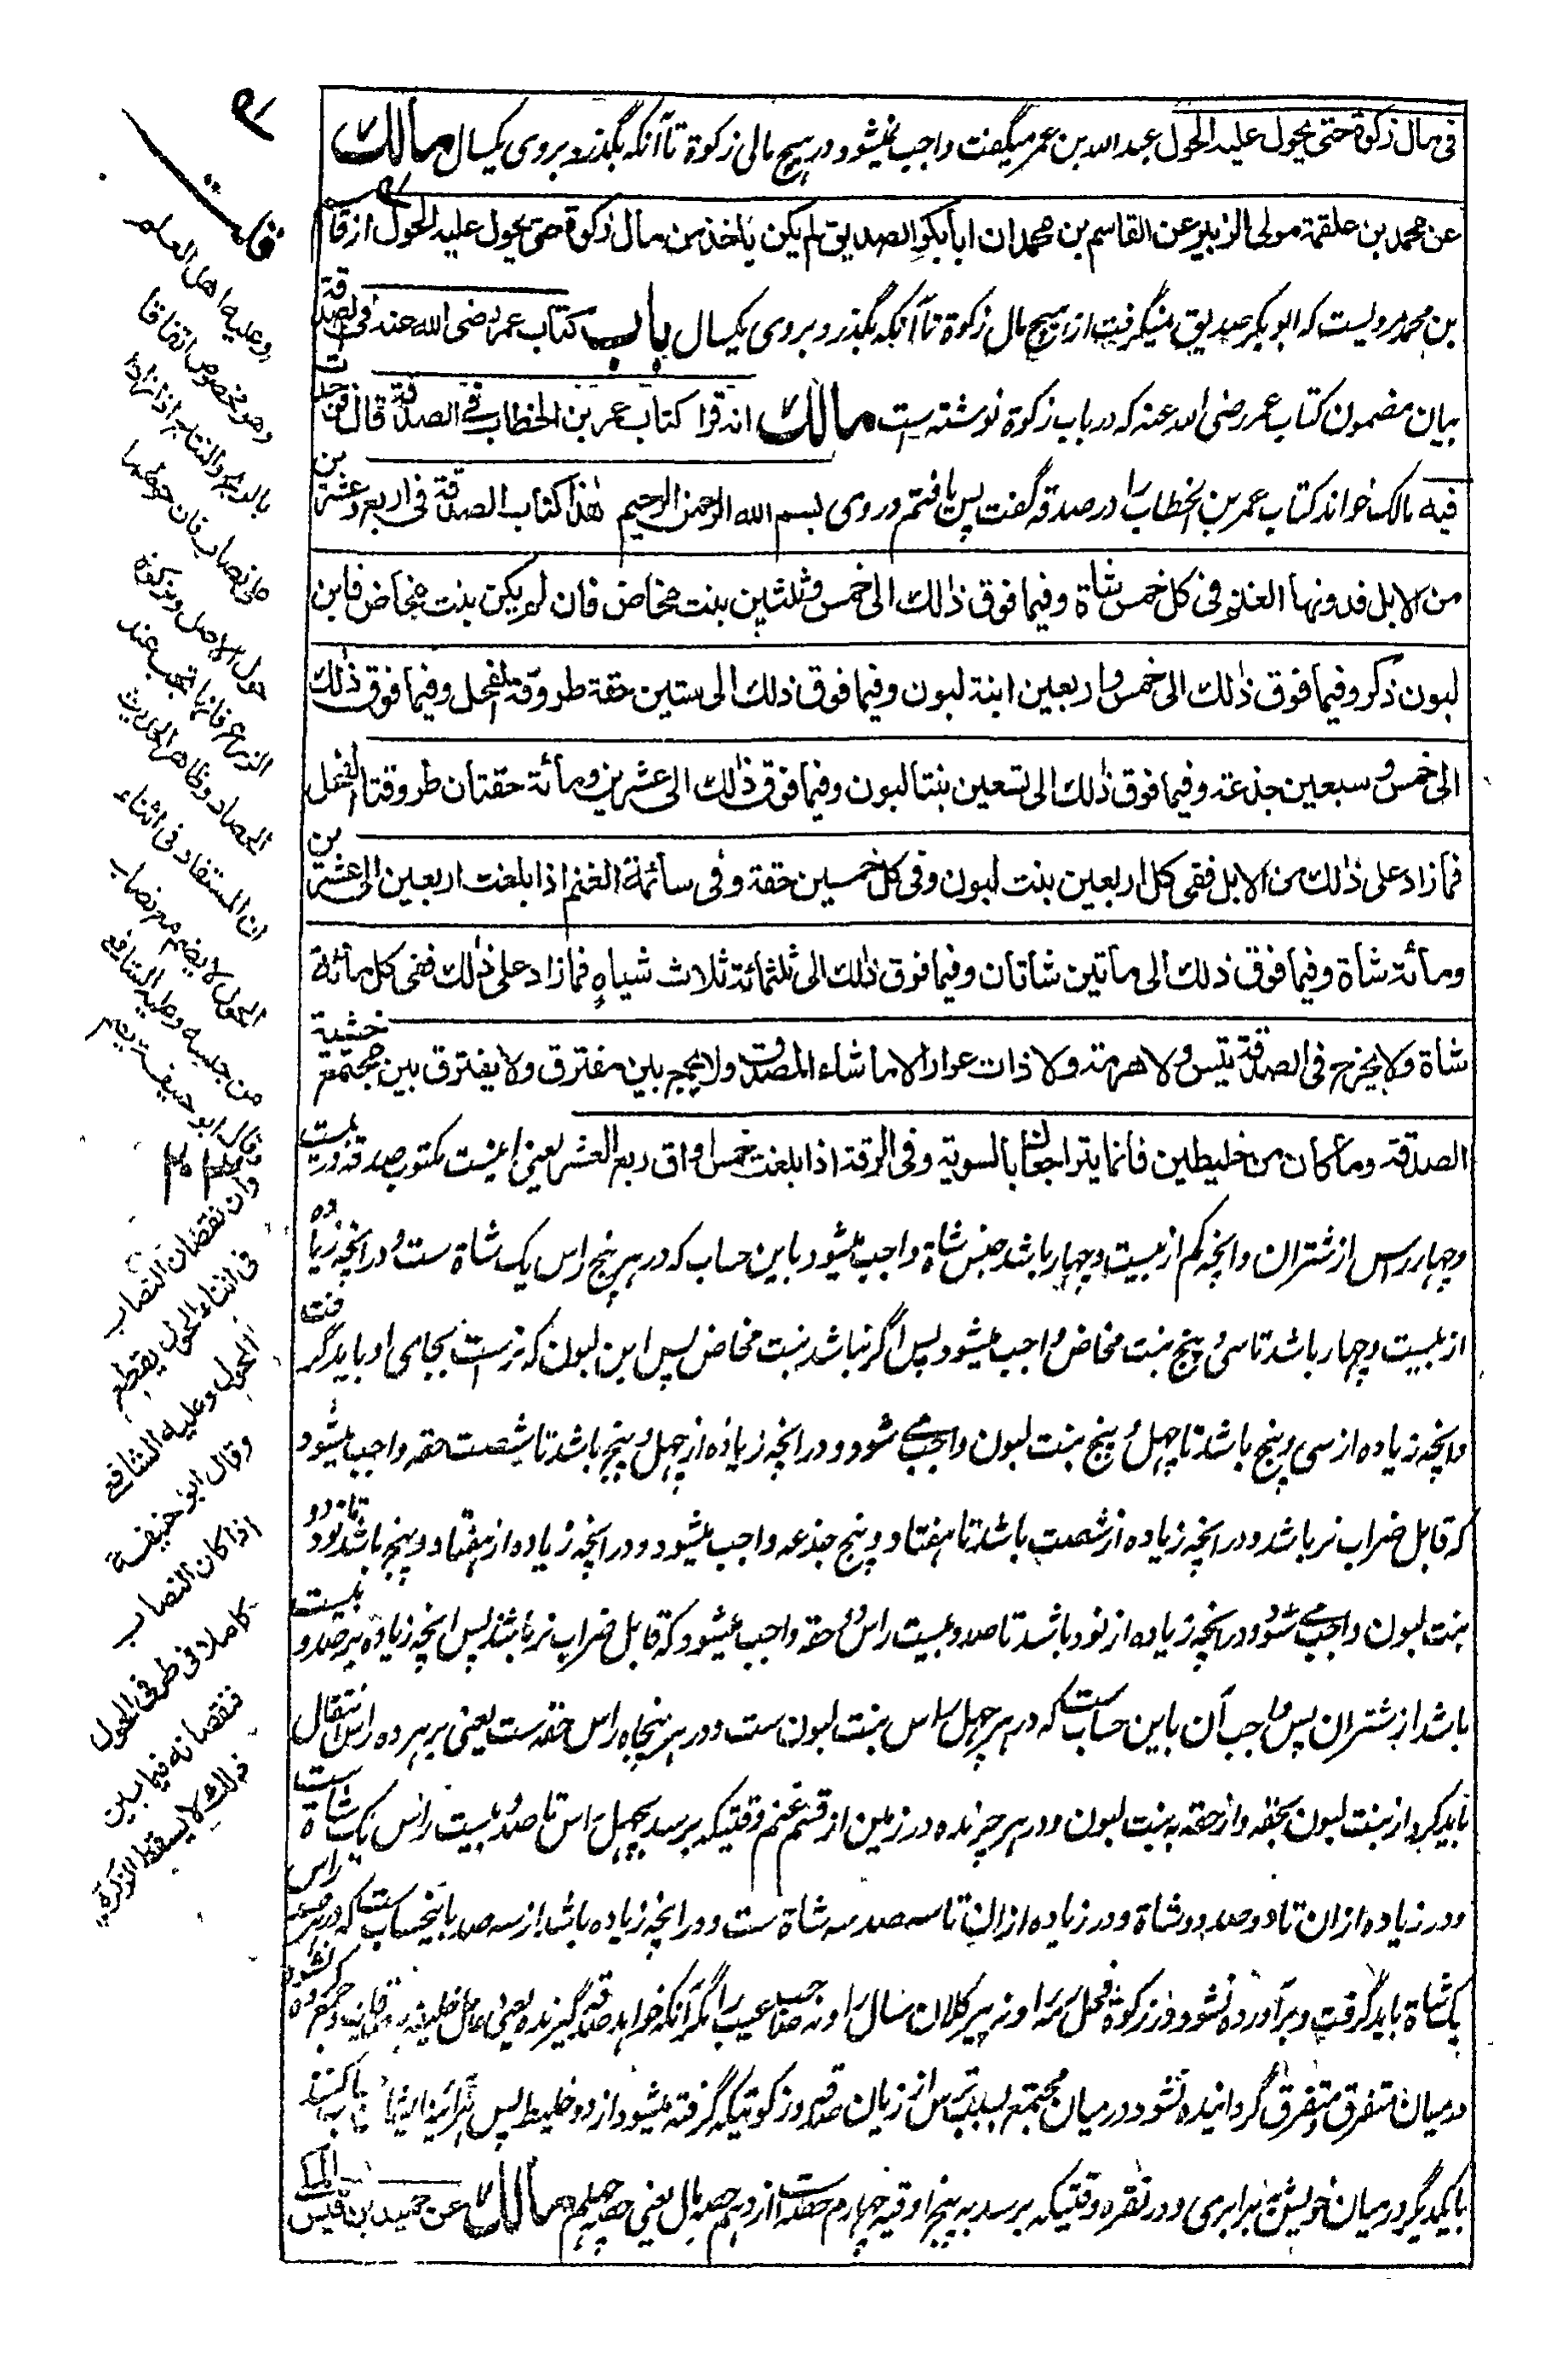 فی مال زکوة حتی یحول علیه الحول عبدالله بن عمر میگفت واجب نمیشود در هیچ مالی زکوة تا آنکه بگذرد بروی یکسال مالك
عن محمد بن علقمة مولی الزبیر عن القاسم بن محمد ان ابا بکر الصدیق لم یکن یاخذ من مال زکوة حتی یحول علیه الحول از قاسم
بن محمد مرویست که ابو بکر صدیق نمیگرفت از هیچ مال زکوة تا آنکه بگذرد بروی یکسال باب کتاب عمر رضی الله عنه فی الصدقة
بیان مضمون کتاب عمر رضی الله عنه که در باب زکوة نوشته است مالك انه قرا کتاب عمر بن الخطاب فی الصدقة قال فوجدت
فیه مالک خواند کتاب عمر بن الخطاب را در صدقه گفت پس یافتم در وی بسم الله الرحمن الرحیم هذا کتاب الصدقة فی اربع وعشرین
من الابل فدونها الغنم فی کل خمس شاة وفیما فوق ذلك الی خمس وثلثین بنت مخاض فان لم یکن بنت مخاض فابن
لبون ذکر وفیما فوق ذلك الی خمس واربعین ابنة لبون وفیما فوق ذلك الی ستین حقة طروقة الفحل وفیما فوق ذلك
الی خمس وسبعین جذعة وفیما فوق ذلك الی تسعین بنتا لبون وفیما فوق ذلك الی عشرین ومائة حقتان طروقتا الفحل
فما زاد علی ذلك من الابل ففی کل اربعین بنت لبون وفی کل خمسین حقة وفی سائمة الغنم اذا بلغت اربعین الی عشرین
ومائة شاة وفیما فوق ذلك الی مأتین شاتان وفیما فوق ذلك الی ثلثمائة ثلاث شیاه فما زاد علی ذلك ففی کل مائة
شاة ولا یخرج فی الصدقة تیس ولا هرمة ولا ذات عوار الا ما شاء المصدق ولا یجمع بین مفترق ولا یفترق بین مجتمع خشیة
الصدقة وما کان من خلیطین فانما یتراجعان بالسویة وفی الرقة اذا بلغت خمس اواق ربع العشر یعنی اینست مکتوب صدقه در بست
و چهار راس از شتران و انچه کم از بیست و چهار باشد جنس شاة واجب میشود باین حساب که در هر پنج راس یک شاة ست و در انچه زیاده
از بیست و چهار باشد تا سی و پنج بنت مخاض واجب میشود پس اگر نباشد بنت مخاض پس ابن لبون که نر است بجای او باید گرفت
و انچه زیاده از سی و پنج باشد تا چهل و پنج بنت لبون واجب می شود و در انچه زیاده از چهل و پنج باشد تا شصت حقه واجب میشود
که قابل ضراب نر باشد و در انچه زیاده از شصت باشد تا هفتاد و پنج جذعه واجب میشود و در انچه زیاده از هفتاد و پنج باشد تا نود دو
بنت لبون واجب می شود و در انچه زیاده از نود باشد تا صد و بیست راس دو حقه واجب میشود که قابل ضراب نر باشند پس انچه زیاده بر صد و بیست
باشد از شتران پس واجب آن باین حساب ست که در هر چهل راس بنت لبون ست و در هر پنجاه راس حقه ست یعنی بر هر ده راس انتقال
باید کرد از بنت لبون بحقه و از حقه به بنت لبون و در هر چرنده در زمین از قسم غنم وقتیکه برسد بچهل راس تا صد و بیست راس یک شاة است
و در زیاده ازان تا دو صد دو شاة و در زیاده ازان تا سه صد سه شاة ست و در انچه زیاده باشد از سه صد باینحساب ست که در هر صد راس
یک شاة باید گرفت و برآورده نشود در زکوة فحل رمه را و نه پیر کلان سال را و نه صاحب عیب را مگر آنکه خواهد صدقه گیرنده یعنی عامل خلیفه و جمع کرده نشود
در میان متفرق و متفرق گردانیده نشود در میان مجتمع بسبب ترس از زیان صدقه و زکوتیکه گرفته میشود از دو خلیط پس
بایکدیگر در میان خویش به برابری و در نقره وقتیکه برسد به پنج اوقیه چهارم حصه ست از دهم حصه مال یعنی حصه چهلم مالك عن حمید بن قیس المکی
وعلیه اهل العلم
وهو مخصوص اتفاقا
حول الاصل وزکوة
الزرع فانها تجب عند
الحصاد وظاهر الحدیث
ان المستفاد فی اثناء
الحول لا یضم مع نصاب
من جنسه وعلیه الشافعی
وقال ابو حنیفة یضم
وان نقصان النصاب
فی اثناء الحول یقطع
الحول وعلیه الشافعی
وقال ابو حنیفة
اذا کان النصاب
کاملا فی طرفی الحول
فنقصانه فیما بین
ذلك لا یسقط الزکوة